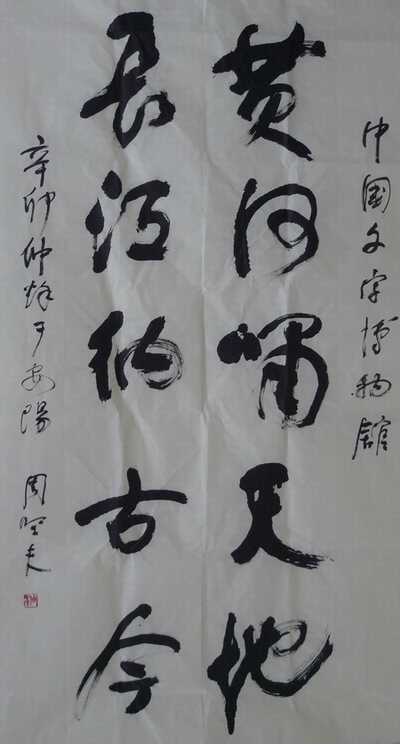 中国文字博物馆
黄河啸天地
長江纳古今
辛卯仲烽于安陽 周笠夫